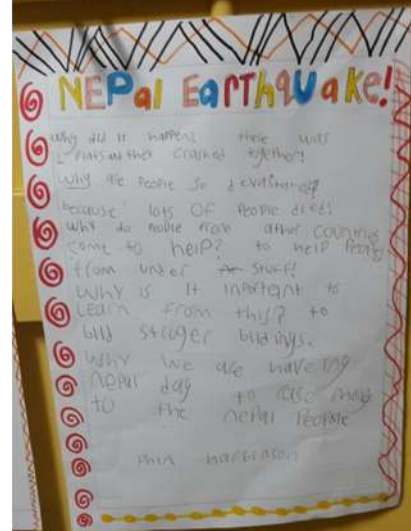 NEPal EarThquake!
why did it happen? there was
2 that crashed together!
Why are people so devastated?
because lots OF People died!
why do people from other countries
come to help? to help People
from under stuff!
Why is it inportant to
Learn from this? to
bild stroger bildings.
Why we are haveing
nepal day to
to the nepal People